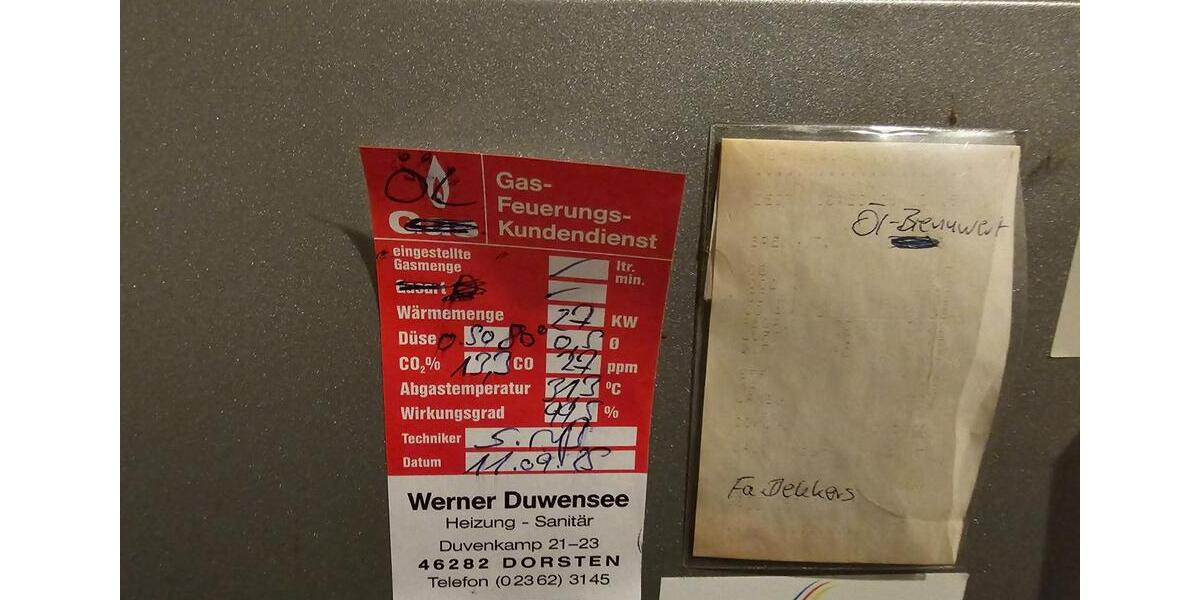 ÖL
Gas
Gas-
Feuerungs-
Kundendienst
eingestellte
Gasmenge
ltr.
min.
Gasart
Wärmemenge 27 KW
Düse 0.50 80° 0,5 ø
CO₂% 13,3 CO 27 ppm
Abgastemperatur °C
Wirkungsgrad 99,5 %
Techniker S.
Datum 11.09.
Werner Duwensee
Heizung - Sanitär
Duvenkamp 21–23
46282 DORSTEN
Telefon (0 23 62) 31 45
Öl-Brennwert
Fa Dekkers